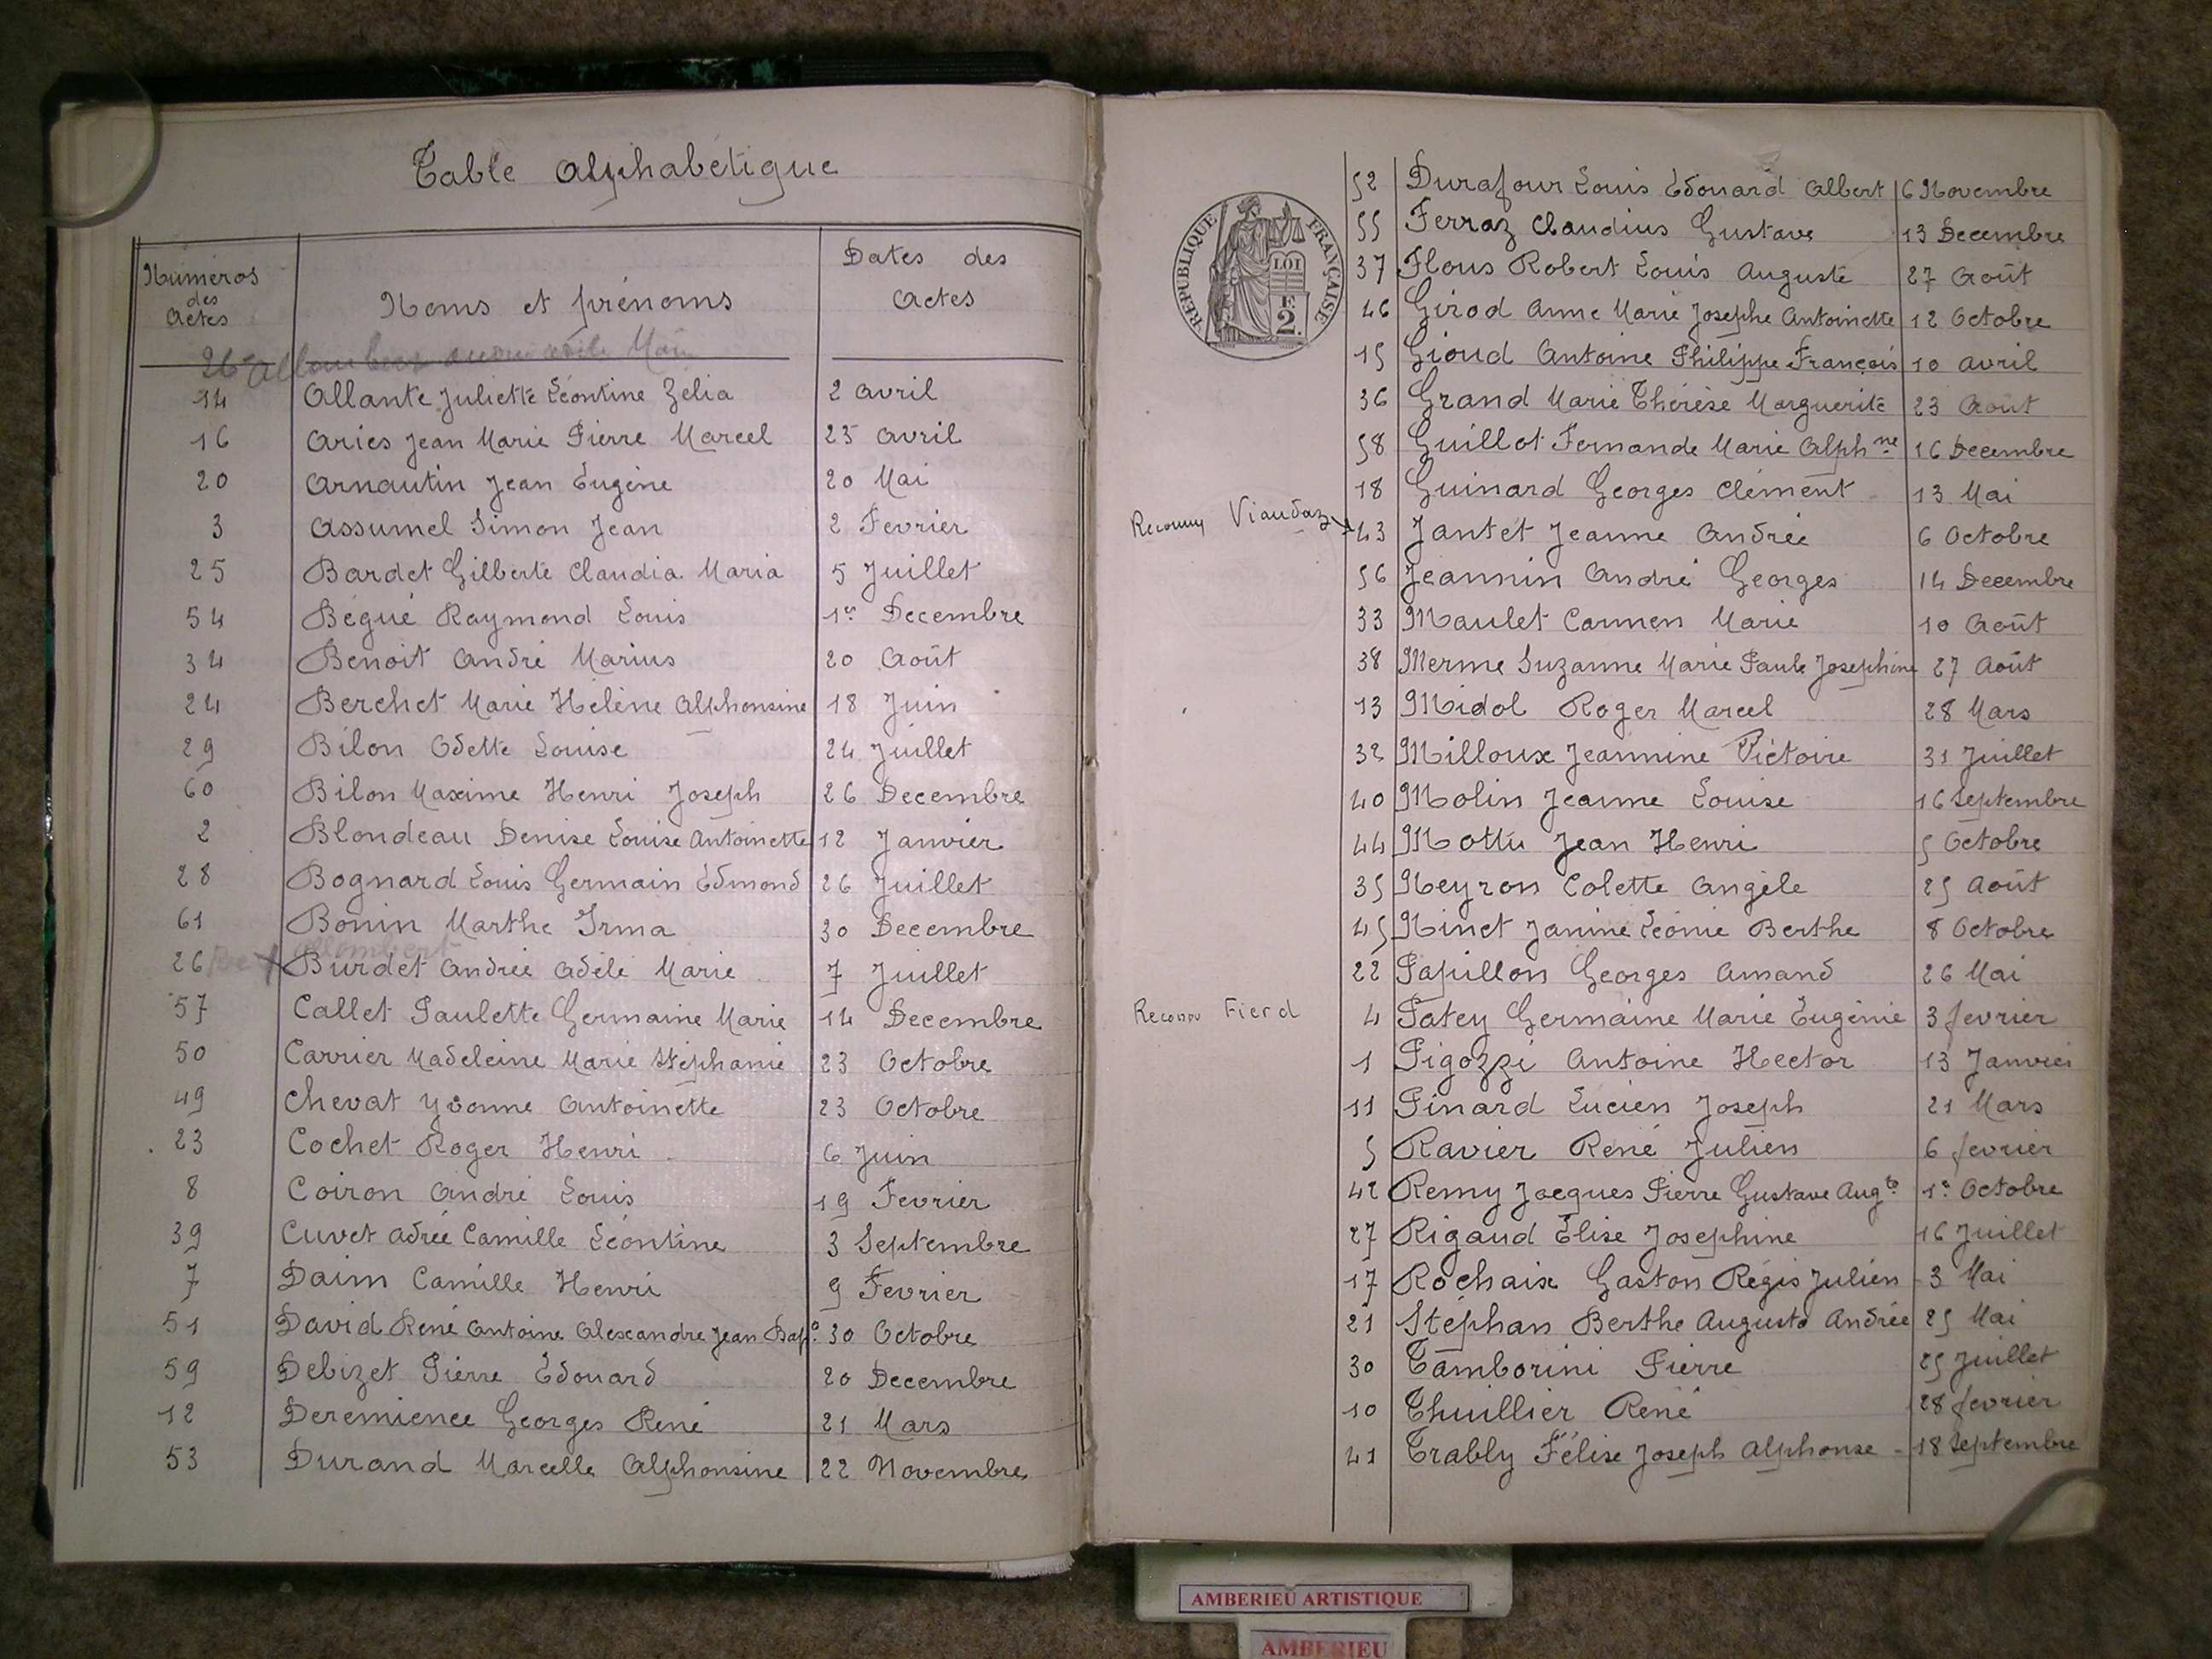 Table Alphabétique
Numéros des Actes
Noms et prénoms
Dates des Actes
26
14 Allante Juliette Léontine Zélia 2 Avril
16 Aries Jean Marie Pierre Marcel 25 Avril
20 Arnautin Jean Eugène 20 Mai
3 Assumel Simon Jean 2 Fevrier
25 Bardet Gilberte Claudia Maria 5 Juillet
54 Bégué Raymond Louis 1er Decembre
34 Benoit André Marius 20 Août
24 Berchet Marie Hélène Alphonsine 18 Juin
29 Bilon Odette Louise 24 Juillet
60 Bilon Maxime Henri Joseph 26 Decembre
2 Blondeau Denise Louise Antoinette 12 Janvier
28 Bognard Louis Germain Edmond 26 Juillet
61 Bonin Marthe Irma 30 Decembre
allombert
26 Burdet Andrée Adèle Marie 7 Juillet
57 Callet Paulette Germaine Marie 14 Decembre
50 Carrier Madeleine Marie Stéphanie 23 Octobre
49 Chevat Yvonne Antoinette 23 Octobre
23 Cochet Roger Henri 6 Juin
8 Coiron André Louis 19 Fevrier
39 Cuvet Adrée Camille Léontine 3 Septembre
7 Daim Camille Henri 9 Fevrier
51 David René Antoine Alexandre Jean Bap. 30 Octobre
59 Debizet Pierre Edouard 20 Decembre
12 Deremience Georges René 21 Mars
53 Durand Marcelle Alphonsine 22 Novembre
RÉPUBLIQUE FRANÇAISE
LOI
E
2.
52 Durafour Louis Edouard Albert 6 Novembre
55 Ferraz Claudius Gustave 13 Decembre
37 Flous Robert Louis Auguste 27 Août
46 Girod Anne Marie Josephe Antoinette 12 Octobre
15 Gioud Antoine Philippe François 10 Avril
36 Grand Marie Thérèse Marguerite 23 Août
58 Guillot Fernande Marie Alphne 16 Decembre
18 Guinard Georges Clément 13 Mai
Reconnu Viaudaz 43 Jantet Jeanne Andrée 6 Octobre
56 Jeannin André Georges 14 Decembre
33 Maulet Carmen Marie 10 Août
38 Merme Suzanne Marie Paule Josephine 27 Août
13 Midol Roger Marcel 28 Mars
32 Milloux Jeannine Victoire 31 Juillet
40 Molin Jeanne Louise 16 Septembre
44 Mottu Jean Henri 5 Octobre
35 Neyron Colette Angèle 25 Août
45 Ninet Janine Léonie Berthe 8 Octobre
22 Papillon Georges Amand 26 Mai
Reconnu Fierd 4 Patey Germaine Marie Eugénie 3 fevrier
1 Pigozzi Antoine Hector 13 Janvier
11 Pinard Lucien Joseph 21 Mars
5 Ravier René Julien 6 fevrier
42 Remy Jacques Pierre Gustave Augte 1er Octobre
27 Rigaud Elise Josephine 16 Juillet
17 Rochaix Gaston Régis Julien 3 Mai
21 Stéphan Berthe Augusta Andrée 25 Mai
30 Tamborini Pierre 25 Juillet
10 Thuillier René 28 fevrier
41 Trably Félise Joseph Alphonse - 18 Septembre
AMBERIEU ARTISTIQUE
AMBERIEU